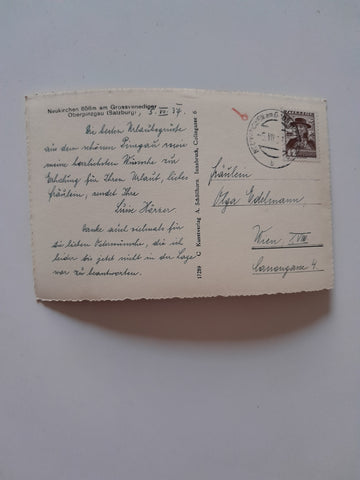 Neukirchen 856m am Grossvenediger
Oberpinzgau (Salzburg), 3. VII. 37
Die besten Urlaubsgrüße
aus dem schönen Pinzgau sowie
meine herzlichsten Wünsche zur
Erholung für Ihren Urlaub, liebes
Fräulein, sendet Ihre
Danke auch vielmals für
die lieben Osterwünsche, die ich
leider bis jetzt nicht in der Lage
war zu beantworten.
17284 C Kunstverlag A. Schöllhorn, Innsbruck, Colingasse 6
ÖSTERREICH
Fräulein
Olga Edelmann
Wien XVIII
Canongasse 4.